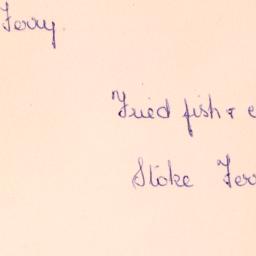 Ferry.
Fried fish & c
Stoke Fer